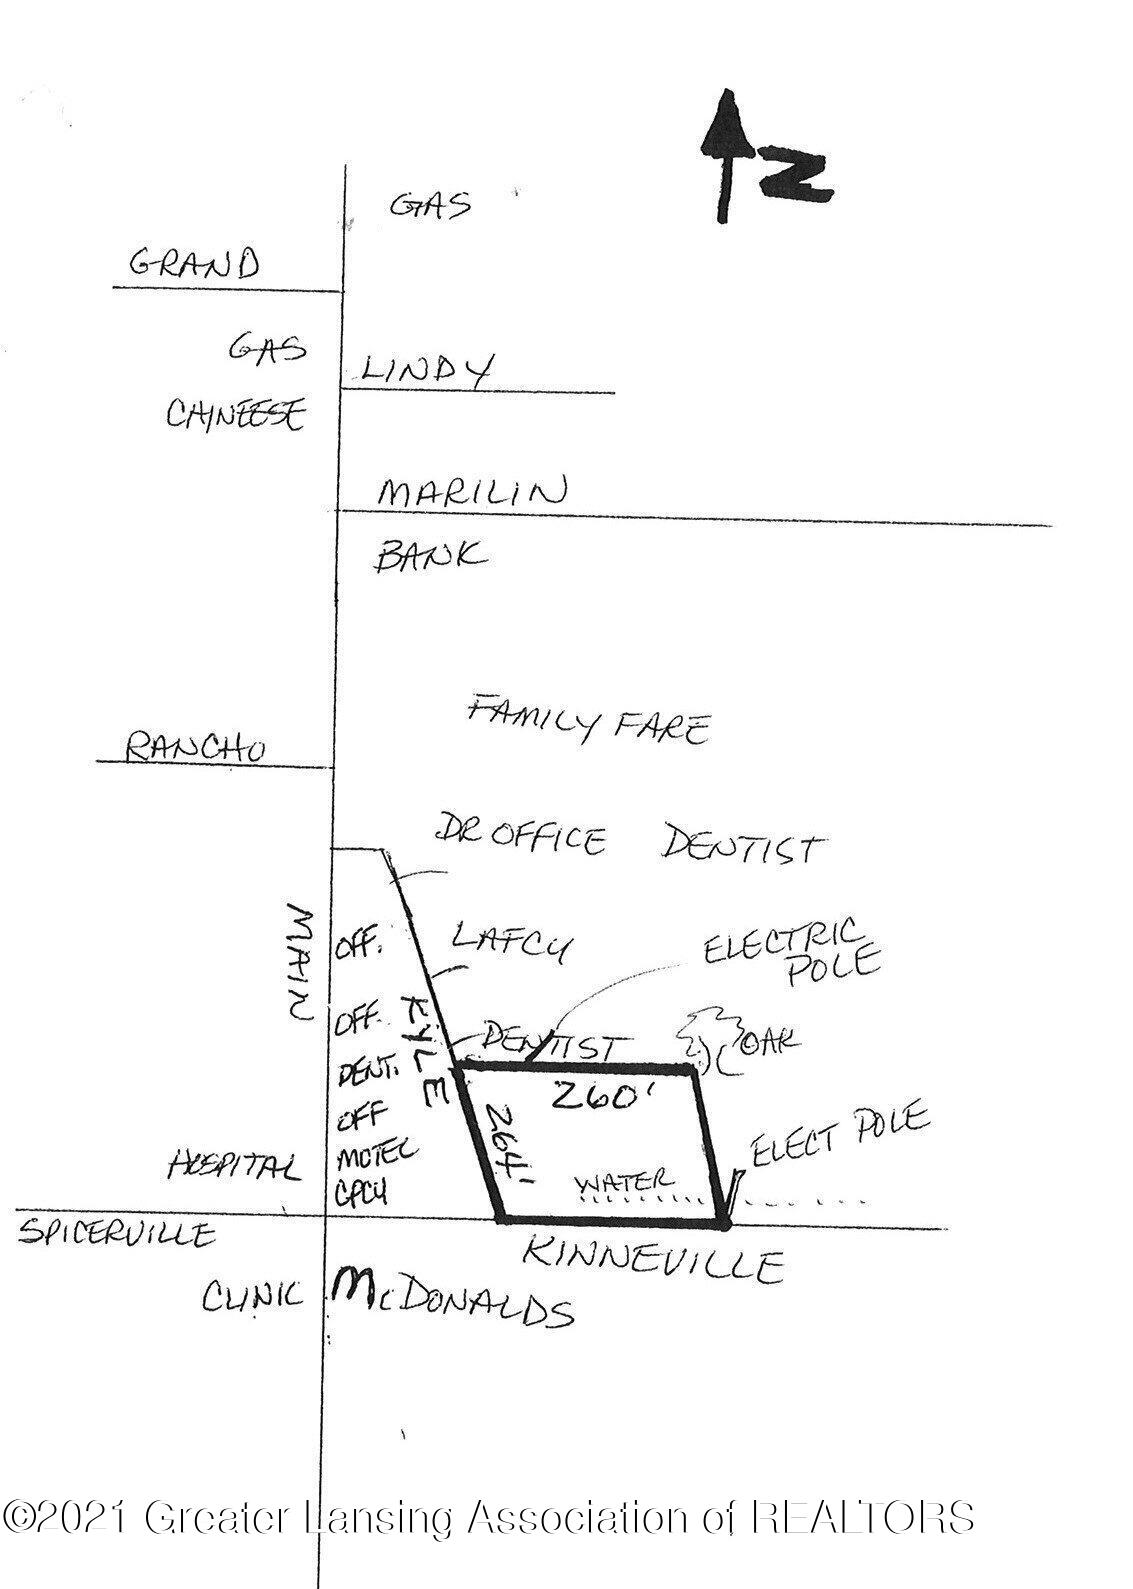 N
GAS
GRAND
GAS
LINDY
CHINEESE
MARILIN
BANK
FAMILY FARE
RANCHO
DR OFFICE DENTIST
MAIN
OFF.
LAFCU
ELECTRIC
POLE
KYLE
OFF.
DENTIST
OAK
DENT.
260'
OFF
264'
ELECT POLE
HOSPITAL
MOTEL
WATER
CPCU
SPICERVILLE
KINNEVILLE
CLINIC
McDONALDS
©2021 Greater Lansing Association of REALTORS